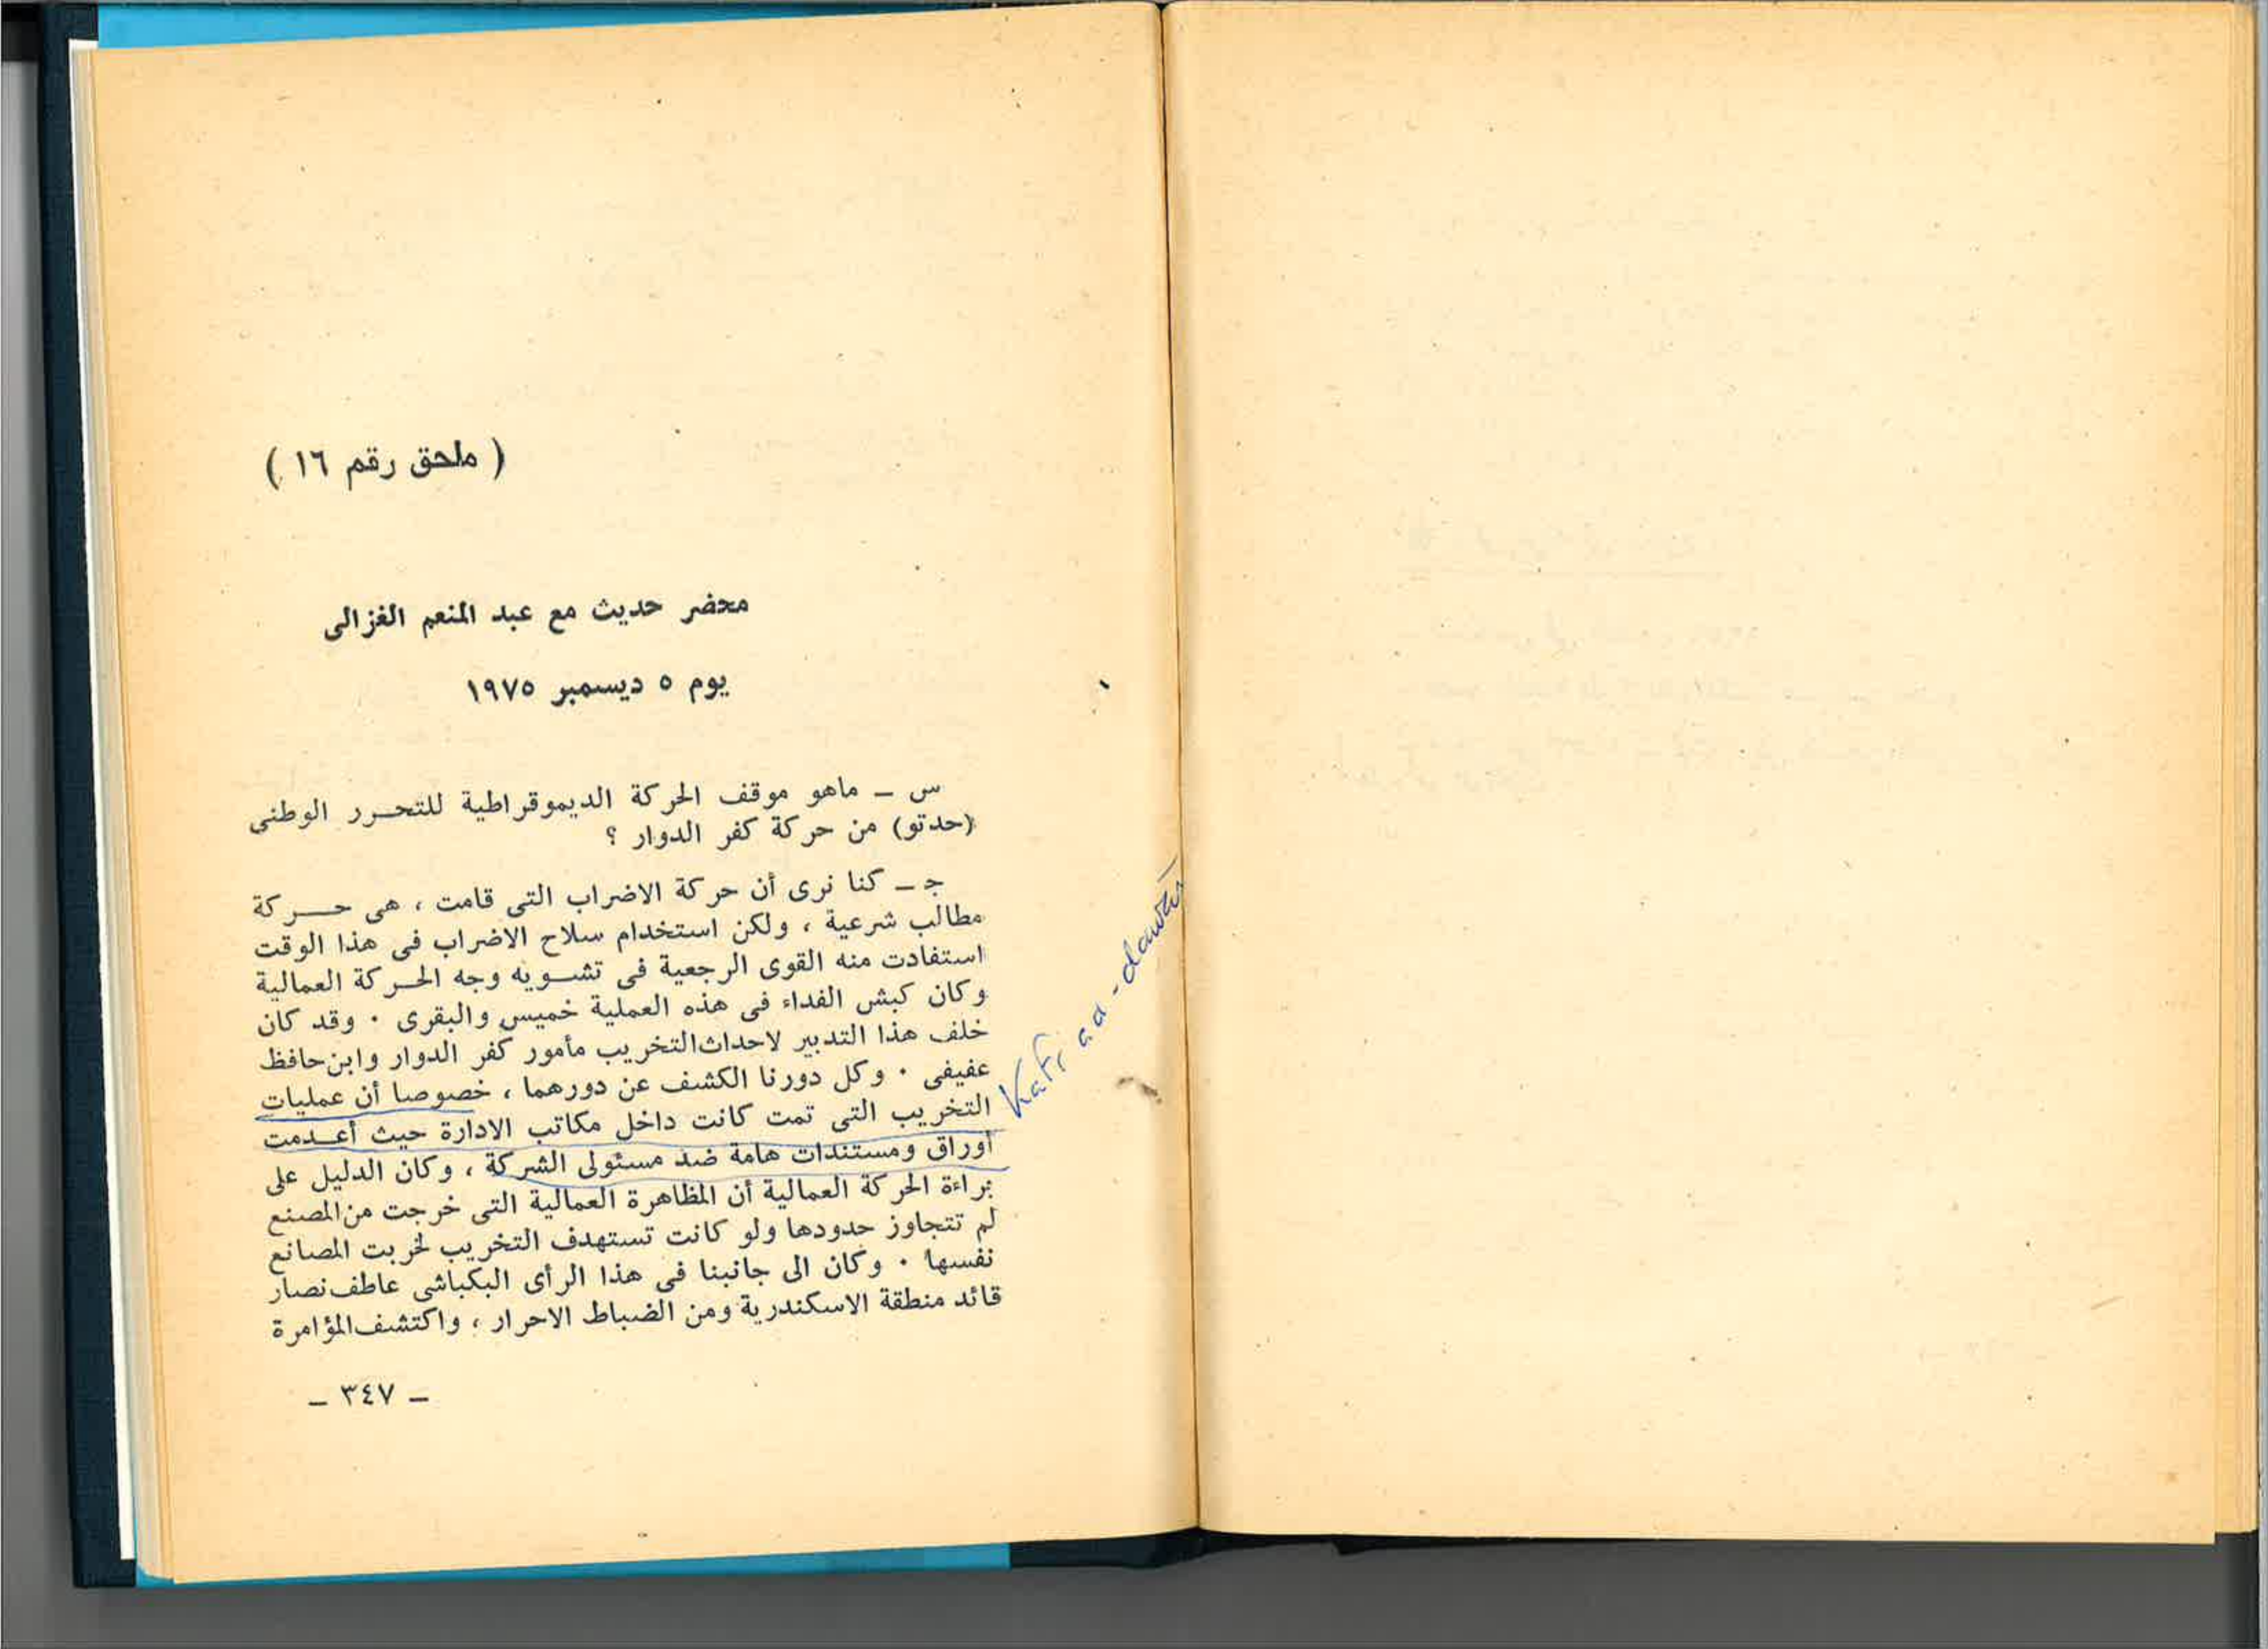 ( ملحق رقم ١٦ )
محضر حديث مع عبد المنعم الغزالى
يوم ٥ ديسمبر ١٩٧٥
س ــ ماهو موقف الحركة الديموقراطية للتحـرر الوطنى
(حدتو) من حركة كفر الدوار ؟
جـ ــ كنا نرى أن حركة الاضراب التى قامت ، هى حـركة
مطالب شرعية ، ولكن استخدام سلاح الاضراب فى هذا الوقت
استفادت منه القوى الرجعية فى تشـويه وجه الحـركة العمالية
وكان كبش الفداء فى هذه العملية خميس والبقرى . وقد كان
خلف هذا التدبير لاحداث التخريب مأمور كفر الدوار وابن حافظ
عفيفى . وكل دورنا الكشف عن دورهما ، خصوصا أن عمليات
التخريب التى تمت كانت داخل مكاتب الادارة حيث أعـدمت
أوراق ومستندات هامة ضد مسئولى الشركة ، وكان الدليل على
براءة الحركة العمالية أن المظاهرة العمالية التى خرجت من المصنع
لم تتجاوز حدودها ولو كانت تستهدف التخريب لخربت المصانع
نفسها . وكان الى جانبنا فى هذا الرأى البكباشى عاطف نصار
قائد منطقة الاسكندرية ومن الضباط الاحرار ، واكتشف المؤامرة
ــ ٣٤٧ ــ
Kafr ad-dawār